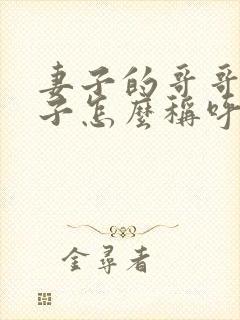 妻子的哥哥
子怎麼稱呼
金尋者